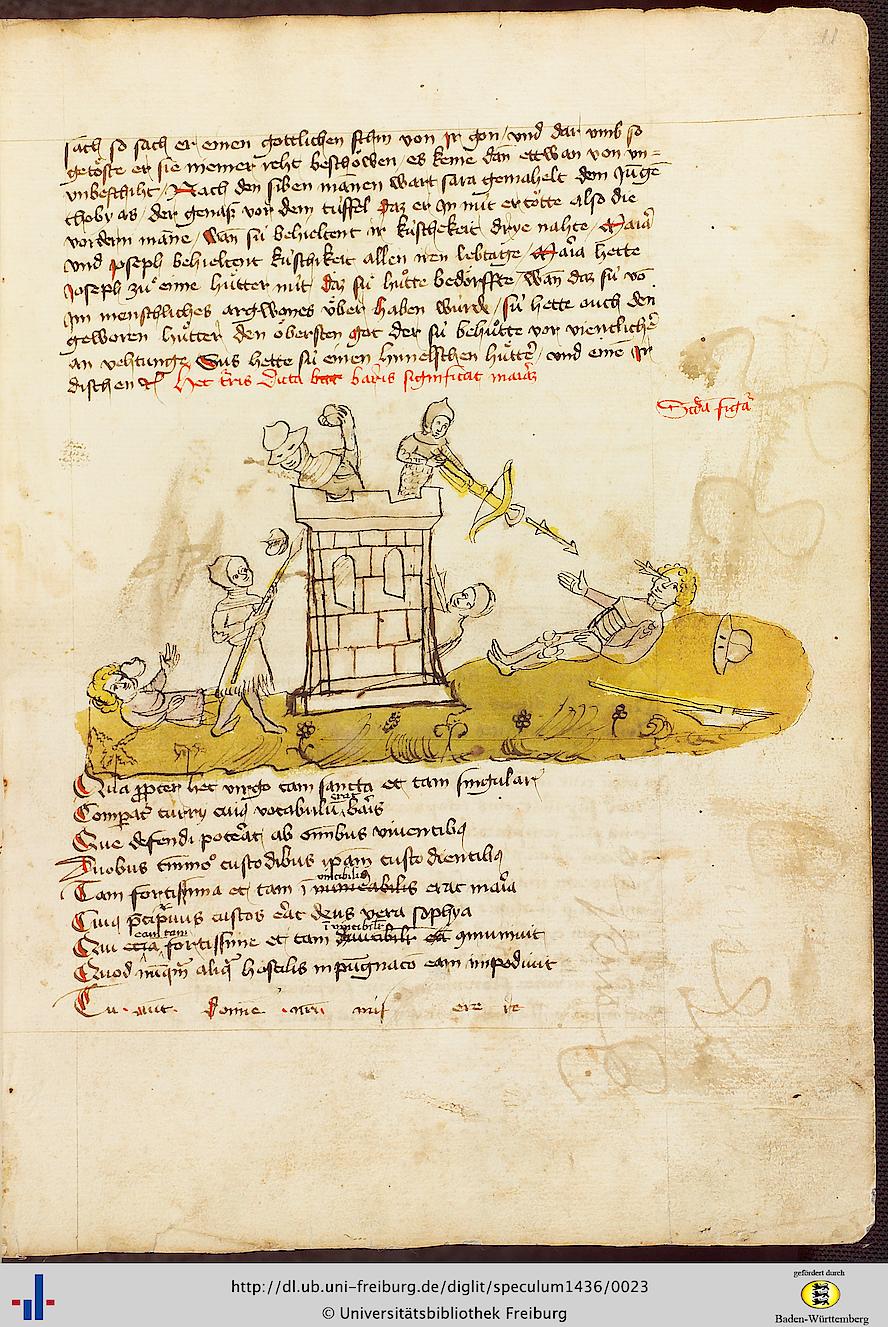 11
sach so sach er einen gottlichen schin von ir gon / und dar umb so
getöste er sie niemer reht beschöwen / es keme dan ettwan von un=
unbeschiht / Nach den siben mannen wart sara gemahelt dem Junge
thobyas, der genaß vor dem tüffel daz er In nüt ertötte also die
vordern mane, wan sü behieltent ir küscheKeit drye nahte, Maria
und Joseph behieltent küschikeit allen iren lebtage, Maria hette
Joseph zu eime hütter nüt daz sü hütte bedörffte, wan daz sü vo
Im menschliches argwones über haben würde / sü hette ouch den
geworen hütter den öbersten got der sü behütte vor vientliche
an vehtunge Sus hette sü einen himelschen hütter, und eine ir
dischen etc Hec turis dicta baris significat maria
Scda figa
Qua propter hec virgo tam sancta et tam singular
Comparat turry cuiq vocabulu erat baris
Que defendi poterat ab omnibus viventibq
Duobus tmmo custodibus ipam custodientibq
Tam fortissima et tam i vincibilis erat maria
Cuiq pcipuus custos erat deus vera sophya
Qui eam tam fortissime et tam i vincibilr cmmunivit
Quod nuqm aliq hostilis inpugnaco eam impedivit
Tu aut domine nrm mis ere re
http://dl.ub.uni-freiburg.de/diglit/speculum1436/0023
© Universitätsbibliothek Freiburg
gefördert durch
Baden-Württemberg